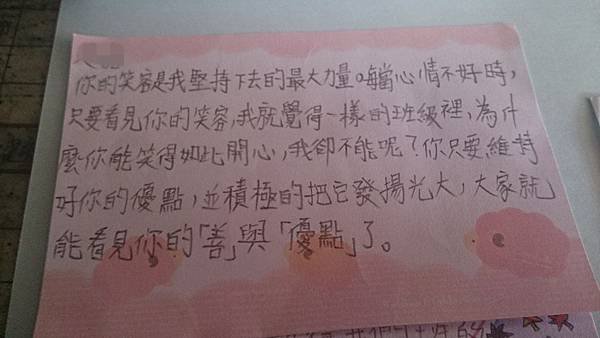 你的笑容是我堅持下去的最大力量。每當心情不好時,
只要看見你的笑容,我就覺得一樣的班級裡,為什
麼你能笑得如此開心,我卻不能呢?你只要維持
好你的優點,並積極的把它發揚光大,大家就
能看見你的「善」與「優點」了。